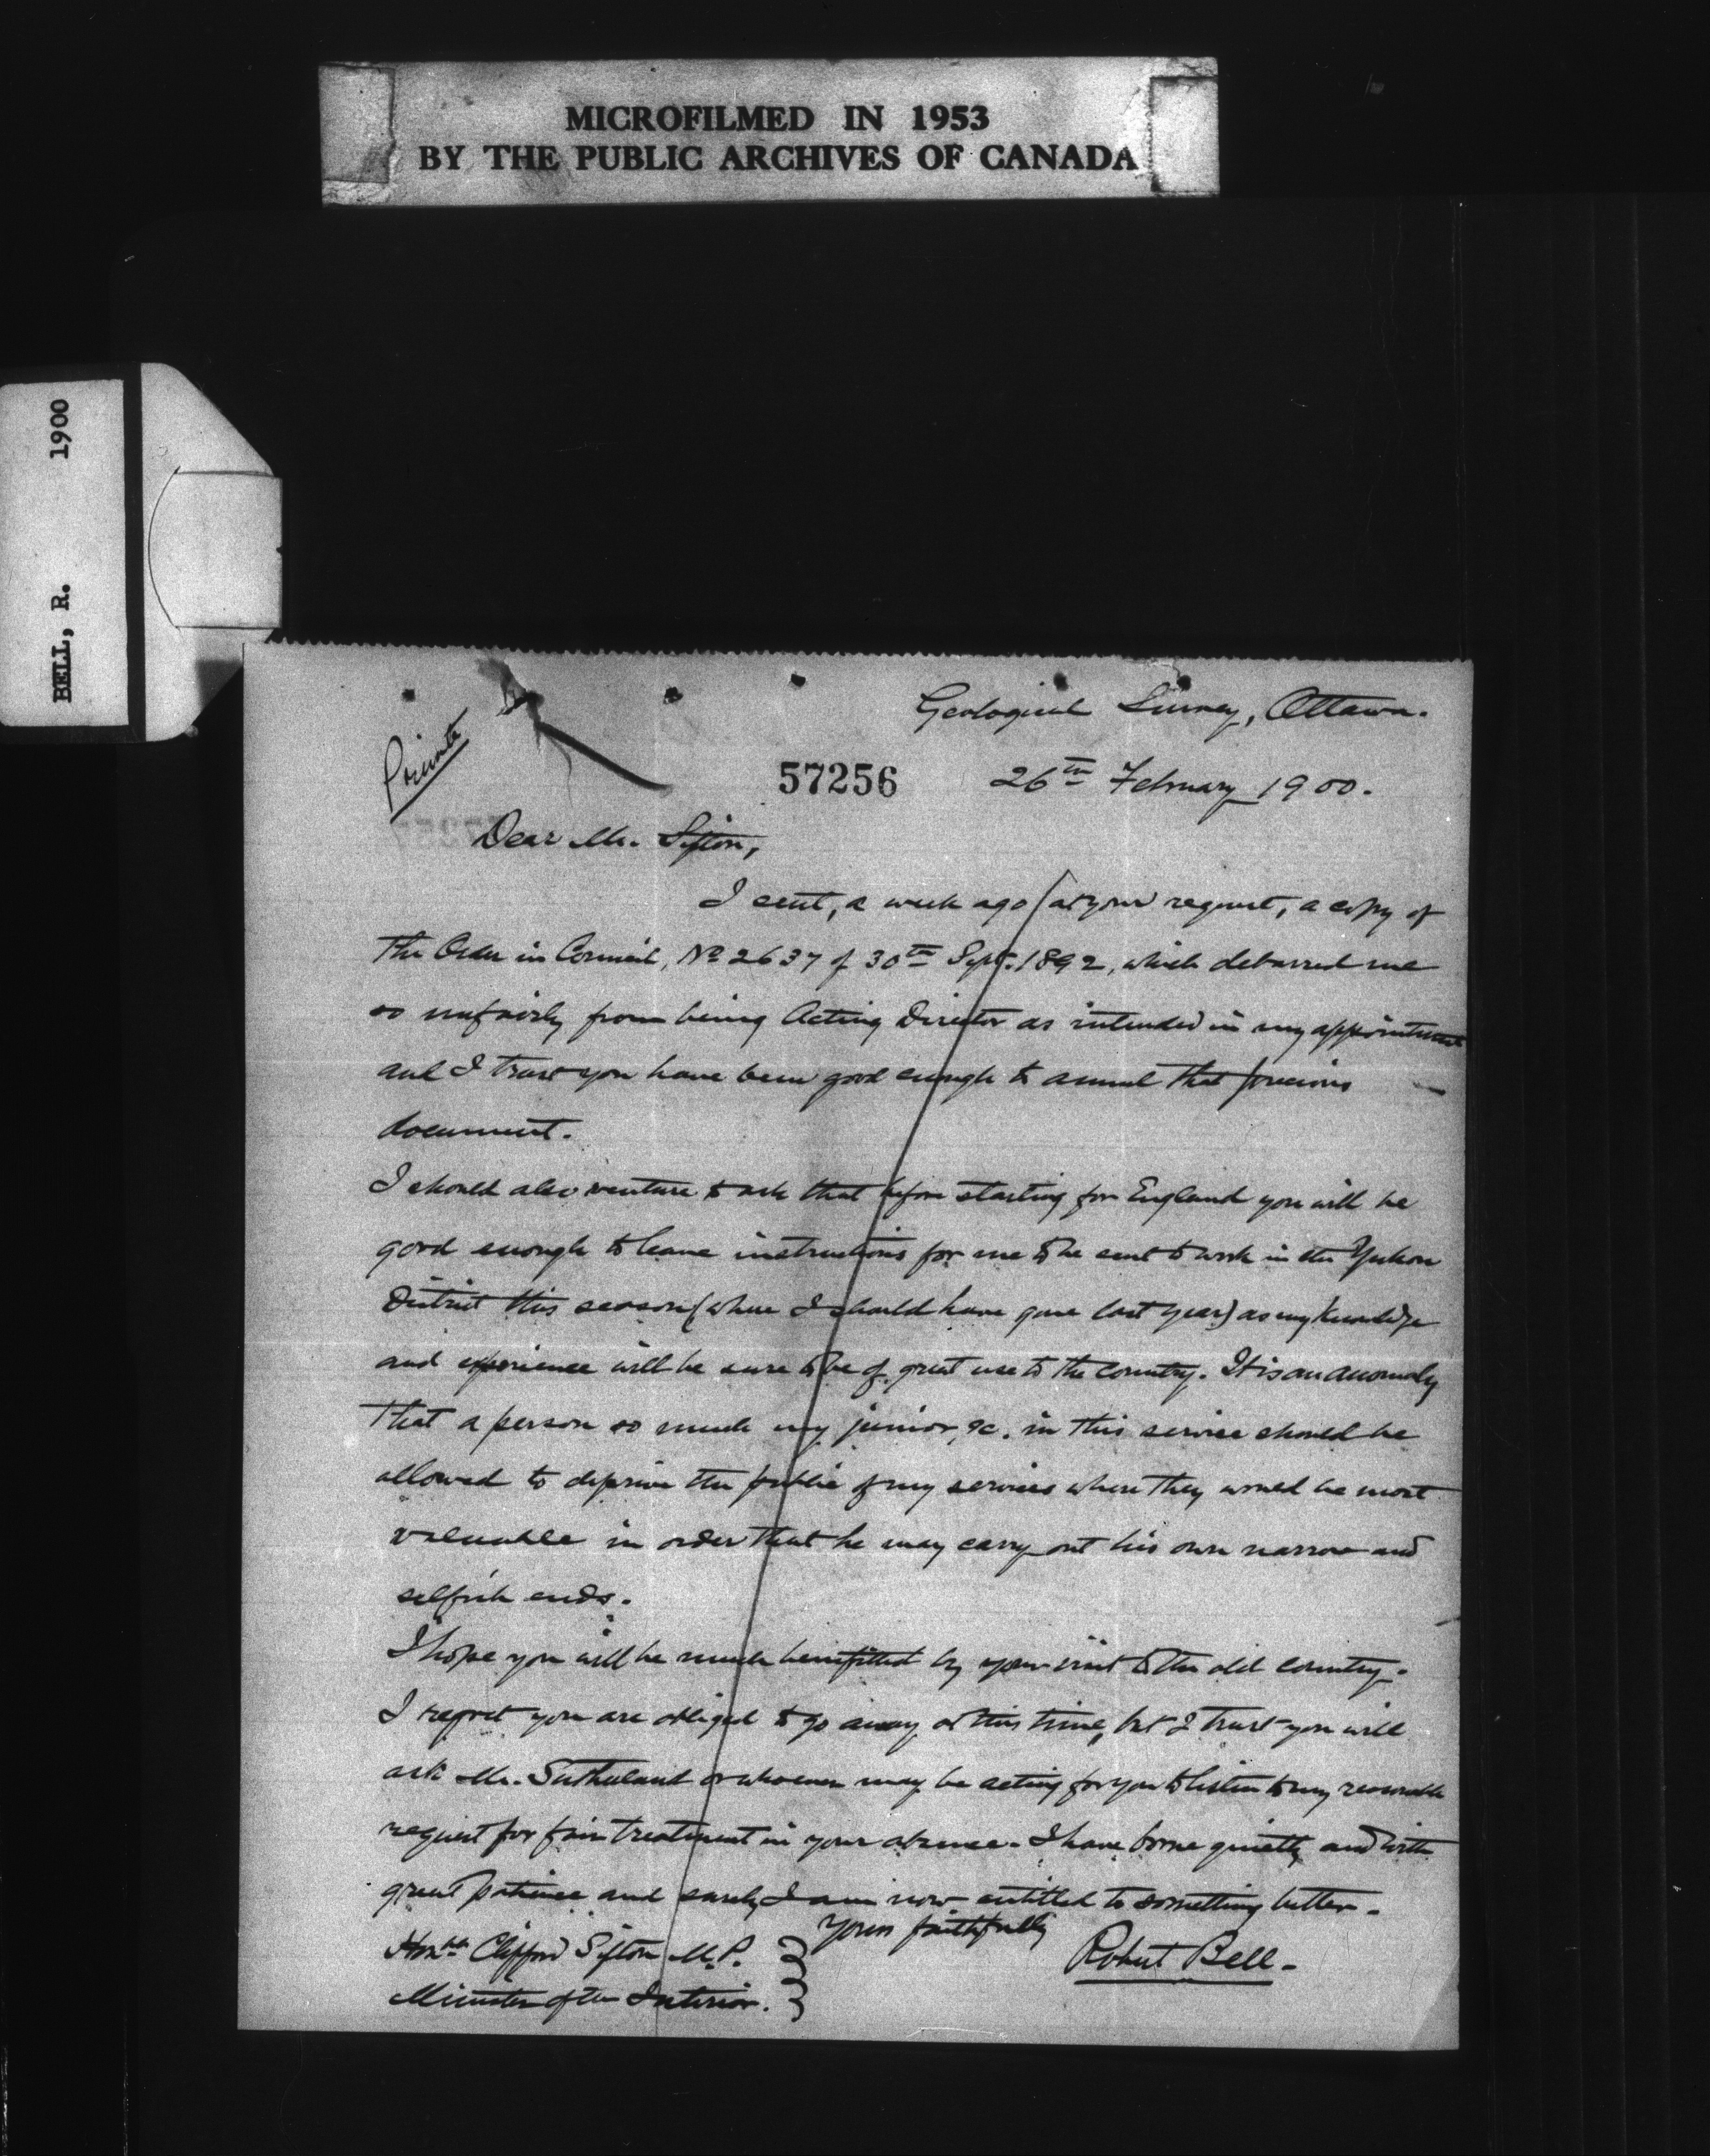 MICROFILMED IN 1953
BY THE PUBLIC ARCHIVES OF CANADA
BELL, R. 1900
Private
Geological Survey, Ottawa.
57256
26th February 1900.
Dear Mr. Sifton,
I sent, a week ago (at your request, a copy of
the Order in Council, No 2637 of 30th Sept. 1892, which debarred me
so unfairly from being Acting Director as intended in my appointment
and I trust you have been good enough to annul that precious
document.
I should also venture to ask that before starting for England you will be
good enough to leave instructions for me to be sent to work in the Yukon
District this season (where I should have gone last year) as my knowledge
and experience will be sure to be of great use to the country. It is an anomaly
that a person so much my junior, &c. in this service should be
allowed to deprive the public of my services where they would be most
valuable in order that he may carry out his own narrow and
selfish ends.
I hope you will be much benefitted by your visit to the old country.
I regret you are obliged to go away at this time, but I trust you will
ask Mr. Sutherland or whoever may be acting for you to listen to my reasonable
request for fair treatment in your absence. I have borne quietly and with
great patience and surely I am now entitled to something better.
Yours faithfully
Robert Bell.
Honble Clifford Sifton M.P.
Minister of the Interior.